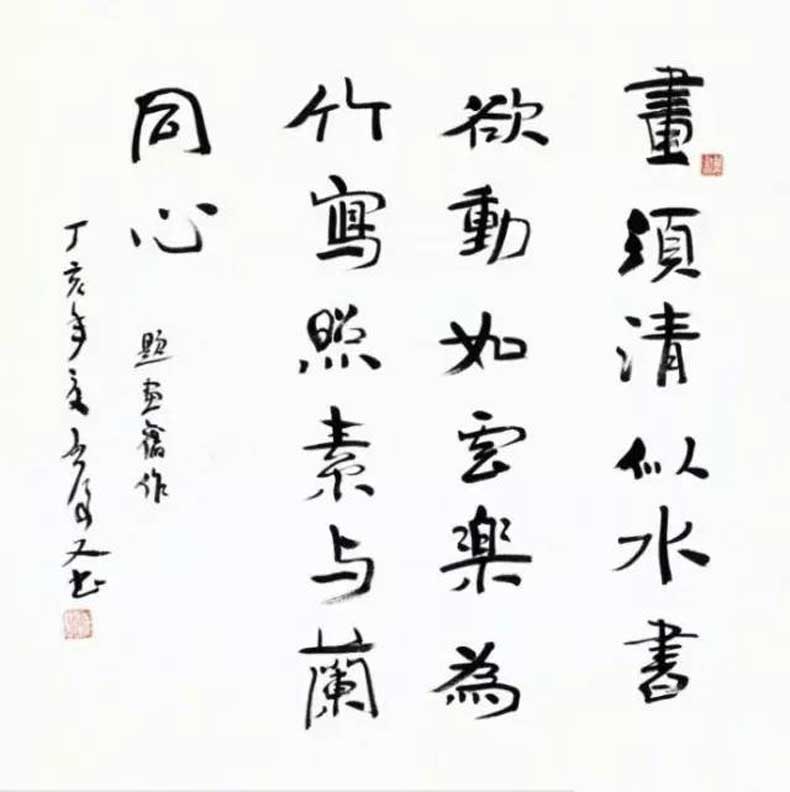 畫須清似水書
欲動如雲樂為
竹寫照素与蘭
同心
題畫舊作
丁亥年夏
又書